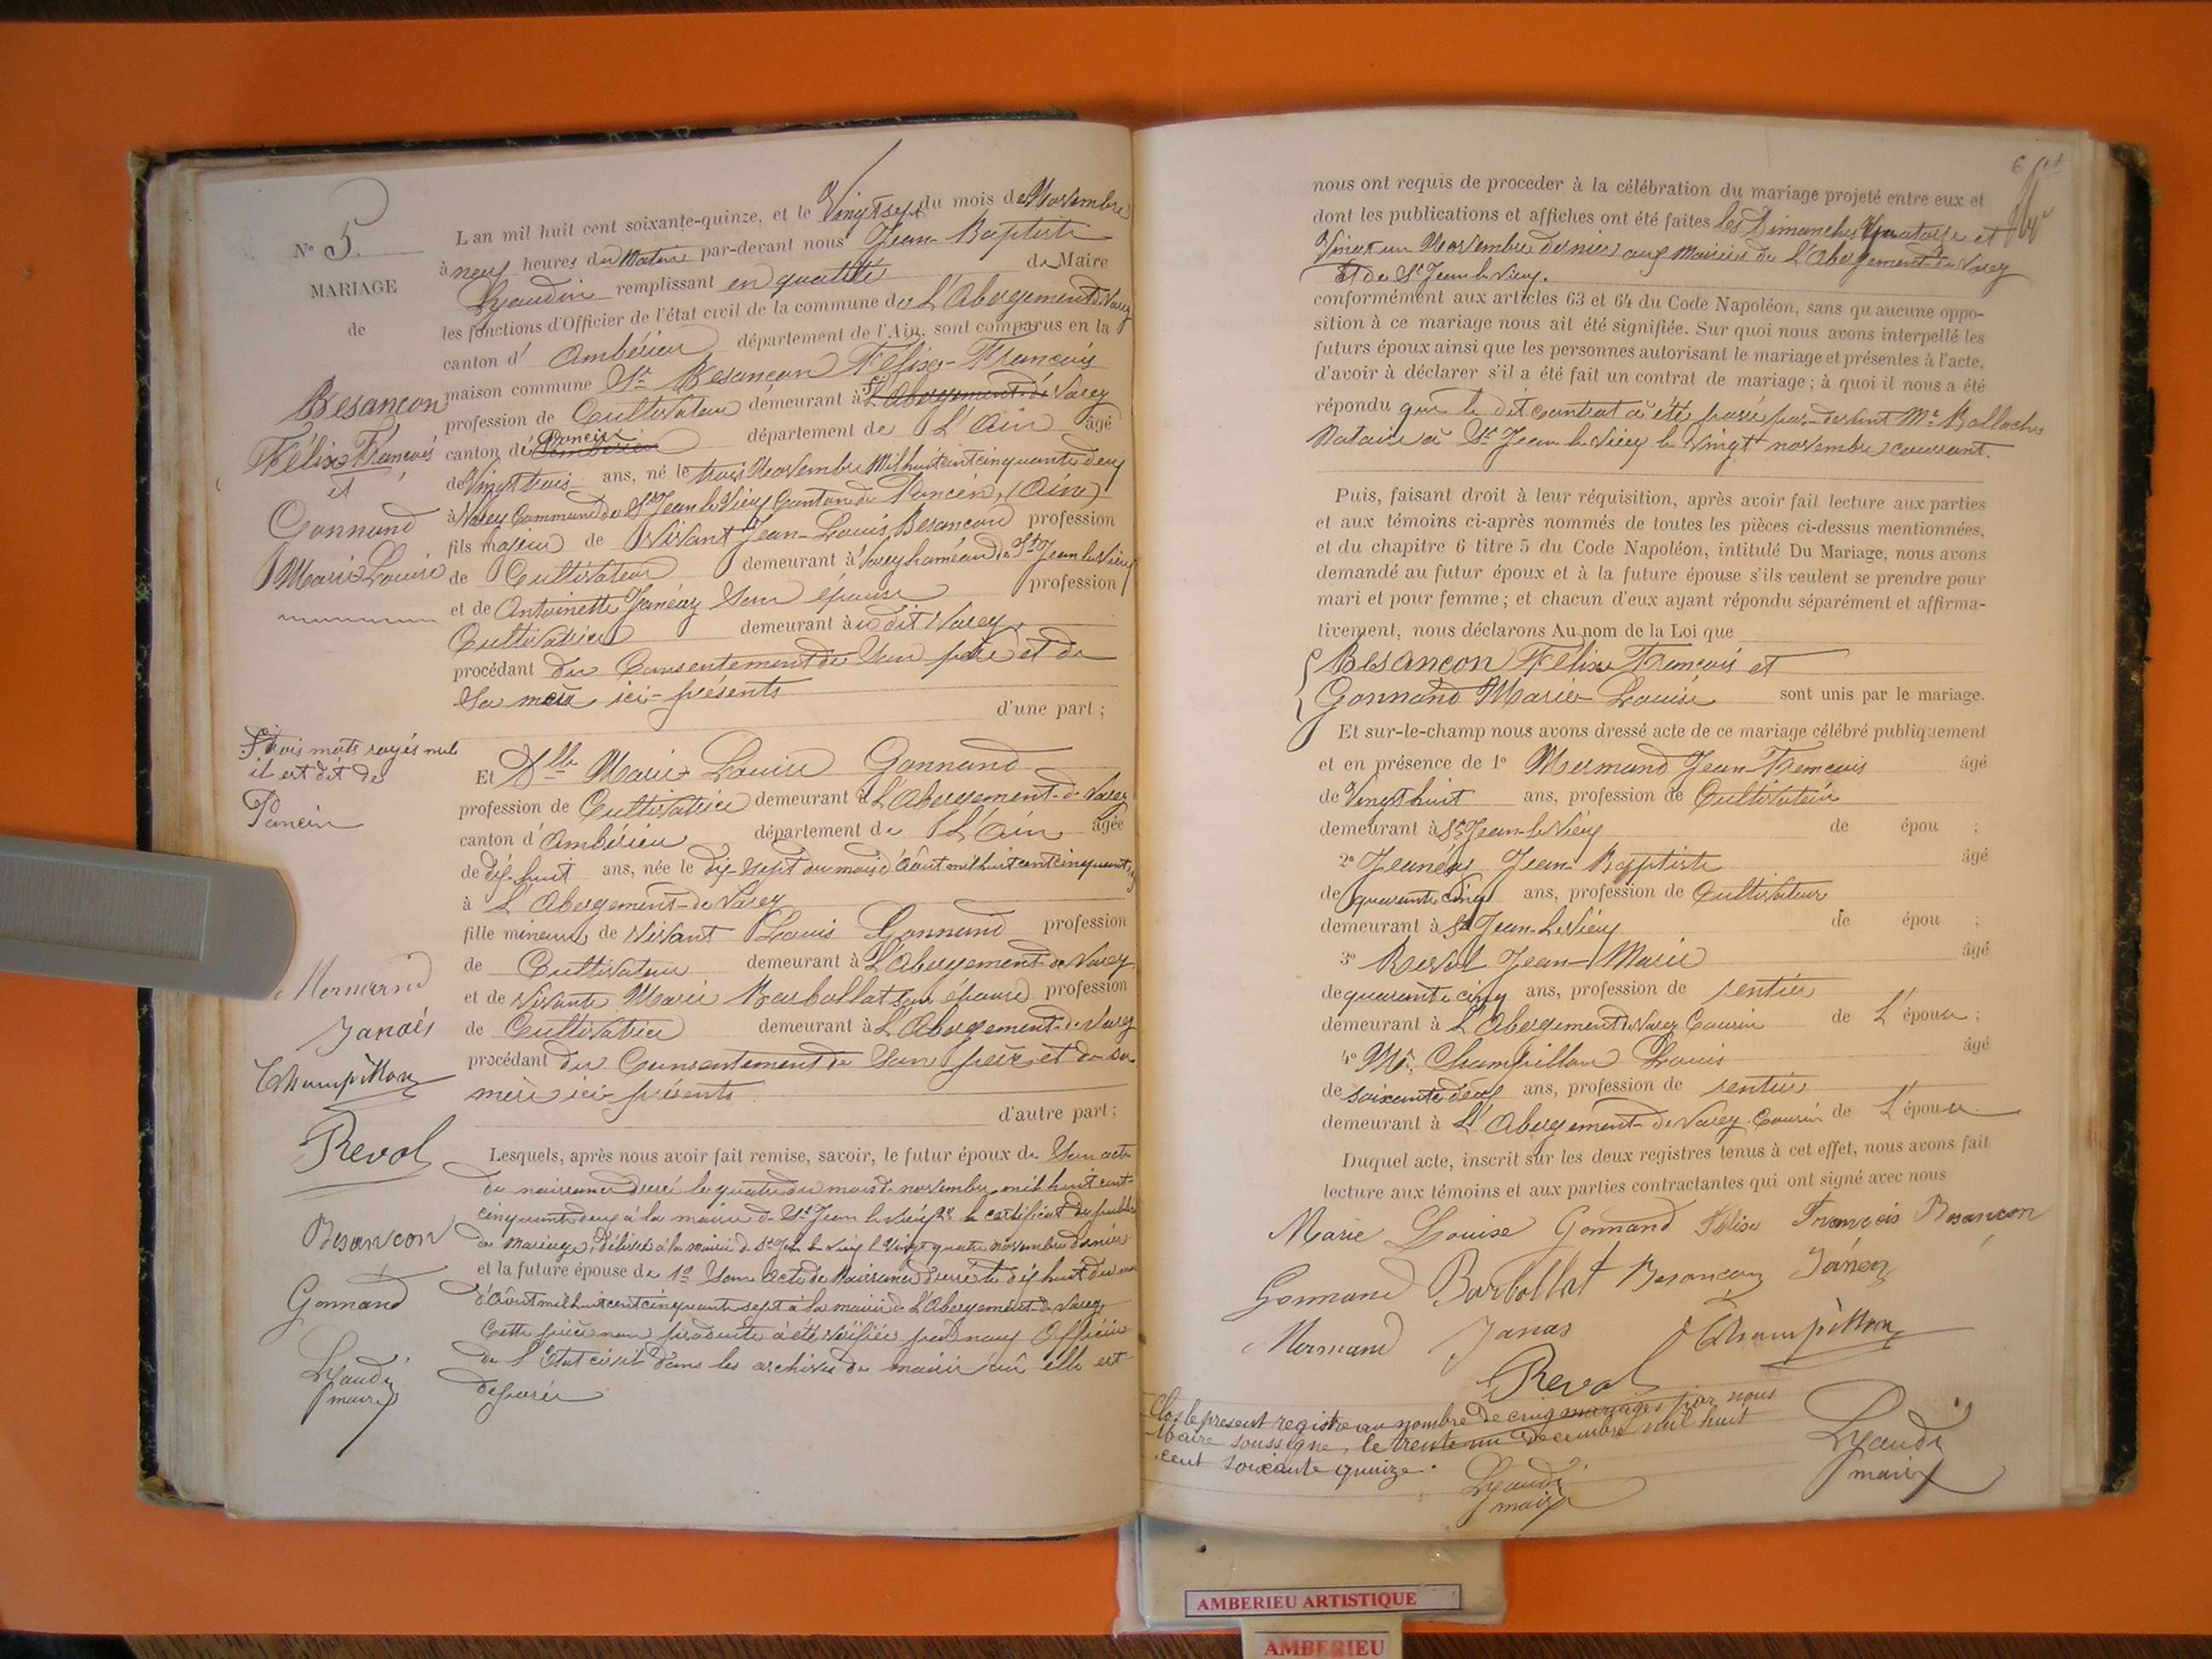 N° 5.
MARIAGE
de
Besançon
Félix François
et
Gonnand
Marie Louise
L'an mil huit cent soixante-quinze, et le Vingt sept du mois de Novembre
à neuf heures du Matin par-devant nous Jean-Baptiste
Lyaudin remplissant en qualité de Maire
les fonctions d'Officier de l'état civil de la commune de L'Abergement de Varey
canton d' Ambérieu département de l'Ain, sont comparus en la
maison commune Sr Besançon Félix-François
profession de Cultivateur demeurant à L'Abergement-de Varey
canton de Poncin Ambérieu département de L'Ain âgé
de Vingt trois ans, né le trois Novembre Mil huit cent cinquante deux
à Varey Commune de St Jean le Vieux Canton de Poncin, (Ain)
fils majeur de Vivant Jean-Louis Besançon profession
de Cultivateur demeurant à Varey hameau de St Jean le Vieux
et de Antoinette Janéaz son épouse profession
Cultivatrice demeurant au dit Varey
procédant du Consentement de Son père et de
Sa mère ici-présents
d'une part ;
trois mots rayés nuls
il est dit de
Poncin
Et Dlle Marie Louise Gonnand
profession de Cultivatrice demeurant à L'Abergement-de Varey
canton d' Ambérieu département de L'Ain âgée
de dix-huit ans, née le dix-sept du mois d'Août mil huit cent cinquante
à L'Abergement-de Varey
fille mineure de Vivant Louis Gonnand profession
de Cultivateur demeurant à L'Abergement-de Varey
et de Vivante Marie Barbollat son épouse profession
de Cultivatrice demeurant à L'Abergement-de Varey
procédant du Consentement de Son père et de sa
mère ici-présents
d'autre part ;
Lesquels, après nous avoir fait remise, savoir, le futur époux de Son acte
de naissance dressé le quatre du mois de novembre mil huit cent
cinquante deux à la mairie de St Jean le Vieux 2° le certificat de publication
de Mariage, délivré à la mairie de St Jean le Vieux le Vingt quatre novembre dernier
et la future épouse de 1° Son Acte de Naissance dressé le dix huit du mois
d'Août mil huit cent cinquante sept à la mairie de L'Abergement-de Varey
Cette pièce non produite a été vérifiée par nous Officier
de l'Etat civil dans les archives de mairie où elle est
déposée
Mermand
Janáés
Champillon
Revol
Besançon
Gonnand
Lyaudi
maire
nous ont requis de proceder à la célébration du mariage projeté entre eux et
dont les publications et affiches ont été faites les Dimanches Quatorze et
Vingt un Novembre dernier aux Mairies de L'Abergement-de Varey
Et de St Jean le Vieux.
conformément aux articles 63 et 64 du Code Napoléon, sans qu'aucune oppo-
sition à ce mariage nous ait été signifiée. Sur quoi nous avons interpellé les
futurs époux ainsi que les personnes autorisant le mariage et présentes à l'acte,
d'avoir à déclarer s'il a été fait un contrat de mariage ; à quoi il nous a été
répondu que le dit contrat a été passé par-devant Me Ballachs
Notaire à St Jean le Vieux le Vingt novembre courant.
Puis, faisant droit à leur réquisition, après avoir fait lecture aux parties
et aux témoins ci-après nommés de toutes les pièces ci-dessus mentionnées,
et du chapitre 6 titre 5 du Code Napoléon, intitulé Du Mariage, nous avons
demandé au futur époux et à la future épouse s'ils veulent se prendre pour
mari et pour femme ; et chacun d'eux ayant répondu séparément et affirma-
tivement, nous déclarons Au nom de la Loi que
Besançon Félix François et
Gonnand Marie-Louise sont unis par le mariage.
Et sur-le-champ nous avons dressé acte de ce mariage célébré publiquement
et en présence de 1° Mermand Jean-François âgé
de Vingt huit ans, profession de Cultivateur
demeurant à St Jean-le Vieux de épou ;
2° Jeanéaz Jean-Baptiste âgé
de quarante cinq ans, profession de Cultivateur
demeurant à St Jean-le Vieux de épou ;
3° Revol Jean-Marie âgé
de quarante cinq ans, profession de rentier
demeurant à L'Abergement de Varey Cousin de L'épouse ;
4° Mr. Champillon Louis âgé
de soixante deux ans, profession de rentier
demeurant à L'Abergement-de Varey Cousin de L'épouse
Duquel acte, inscrit sur les deux registres tenus à cet effet, nous avons fait
lecture aux témoins et aux parties contractantes qui ont signé avec nous
Marie Louise Gonnand Félix François Besançon
Gonnand Barbollat Besançon Janéaz
Mermand Janas Champillon
Revol
Clos le present registre au nombre de cinq mariages par nous
Maire soussigné, le trente un Décembre mil huit
cent soixante quinze.
Lyaudi
maire
Lyaudi
maire
AMBERIEU ARTISTIQUE
AMBERIEU